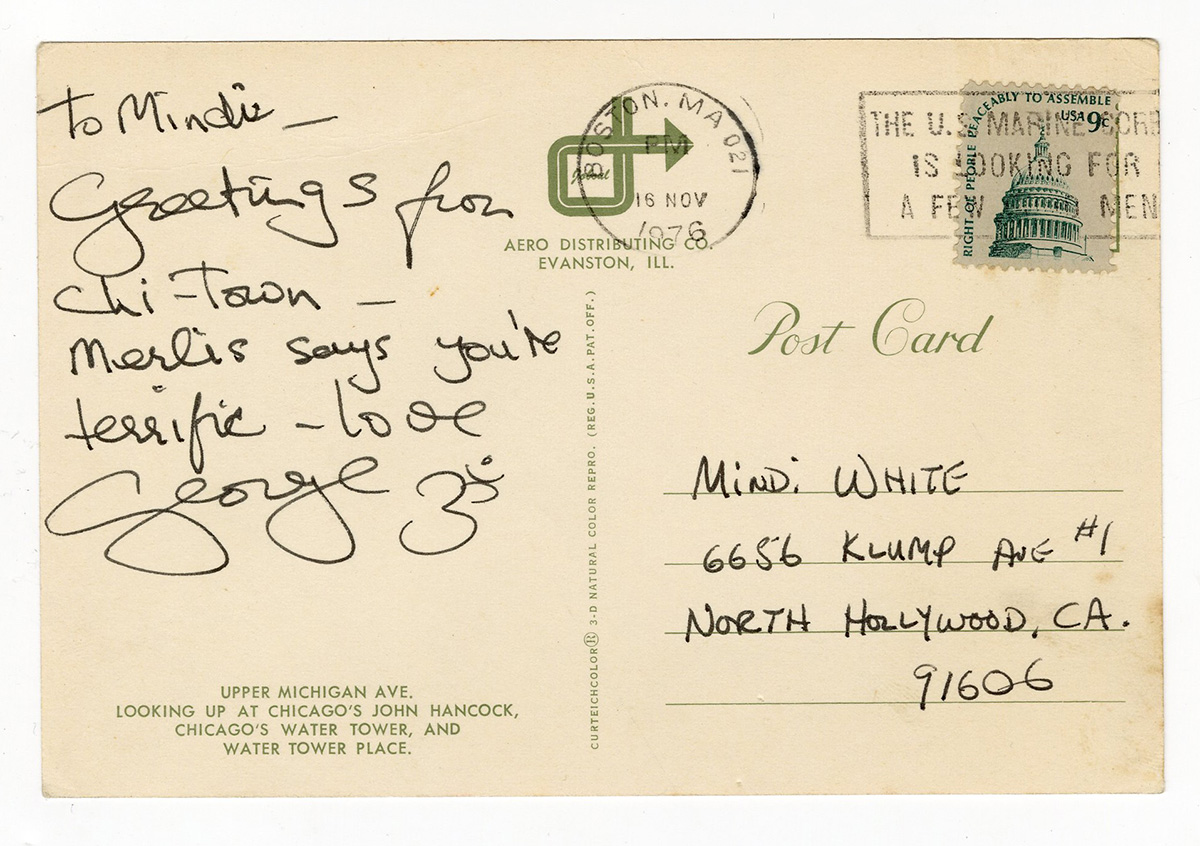 To Mindi –
Greetings from
Chi-Town –
Merlis says you're
terrific – love
George
UPPER MICHIGAN AVE.
LOOKING UP AT CHICAGO'S JOHN HANCOCK,
CHICAGO'S WATER TOWER, AND
WATER TOWER PLACE.
AERO DISTRIBUTING CO.
EVANSTON, ILL.
CURTEICHCOLOR® 3-D NATURAL COLOR REPRO. (REG. U.S.A. PAT. OFF.)
BOSTON, MA 021
PM
16 NOV
1976
THE U.S. MARINE CORP
IS LOOKING FOR
A FEW MEN
RIGHT OF PEOPLE PEACEABLY TO ASSEMBLE
USA 9c
Post Card
MINDi WHITE
6656 KLUMP AVE #1
NORTH HOLLYWOOD, CA.
91606